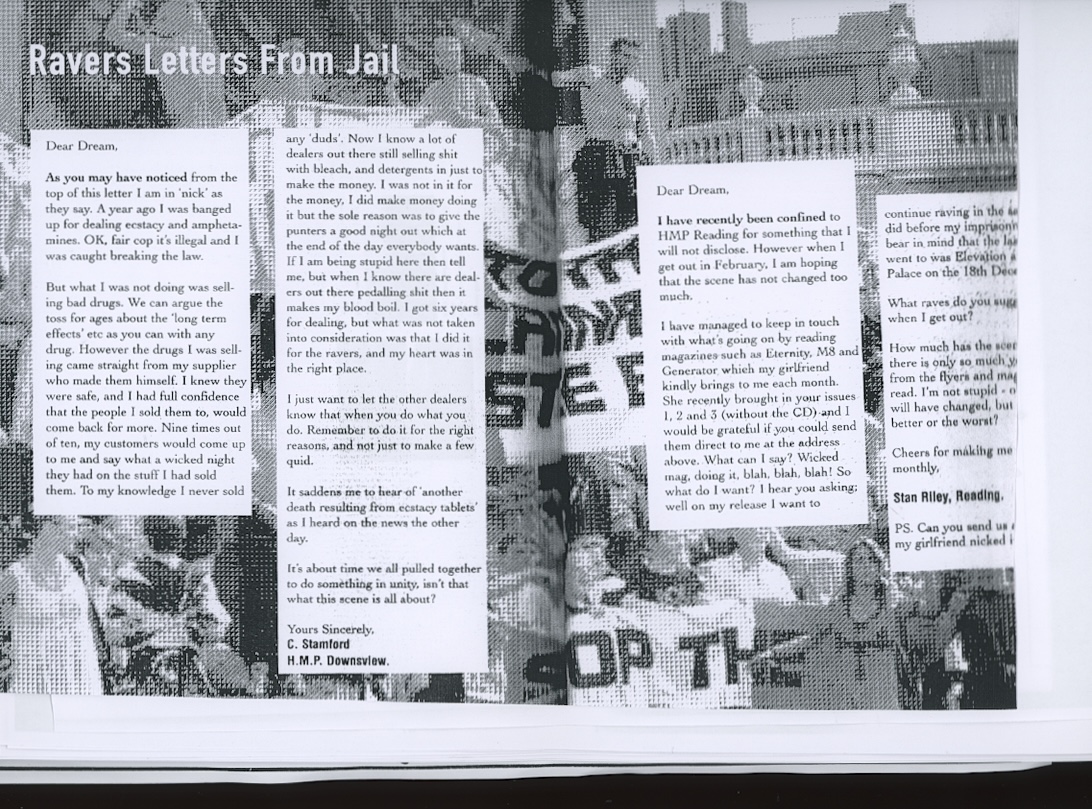 Ravers Letters From Jail
Dear Dream,
As you may have noticed from the
top of this letter I am in 'nick' as
they say. A year ago I was banged
up for dealing ecstacy and ampheta-
mines. OK, fair cop it's illegal and I
was caught breaking the law.
But what I was not doing was sell-
ing bad drugs. We can argue the
toss for ages about the 'long term
effects' etc as you can with any
drug. However the drugs I was sell-
ing came straight from my supplier
who made them himself. I knew they
were safe, and I had full confidence
that the people I sold them to, would
come back for more. Nine times out
of ten, my customers would come up
to me and say what a wicked night
they had on the stuff I had sold
them. To my knowledge I never sold
any 'duds'. Now I know a lot of
dealers out there still selling shit
with bleach, and detergents in just to
make the money. I was not in it for
the money, I did make money doing
it but the sole reason was to give the
punters a good night out which at
the end of the day everybody wants.
If I am being stupid here then tell
me, but when I know there are deal-
ers out there pedalling shit then it
makes my blood boil. I got six years
for dealing, but what was not taken
into consideration was that I did it
for the ravers, and my heart was in
the right place.
I just want to let the other dealers
know that when you do what you
do. Remember to do it for the right
reasons, and not just to make a few
quid.
It saddens me to hear of 'another
death resulting from ecstacy tablets'
as I heard on the news the other
day.
It's about time we all pulled together
to do something in unity, isn't that
what this scene is all about?
Yours Sincerely,
C. Stamford
H.M.P. Downsview.
Dear Dream,
I have recently been confined to
HMP Reading for something that I
will not disclose. However when I
get out in February, I am hoping
that the scene has not changed too
much.
I have managed to keep in touch
with what's going on by reading
magazines such as Eternity, M8 and
Generator which my girlfriend
kindly brings to me each month.
She recently brought in your issues
1, 2 and 3 (without the CD) and I
would be grateful if you could send
them direct to me at the address
above. What can I say? Wicked
mag, doing it, blah, blah, blah! So
what do I want? I hear you asking;
well on my release I want to
continue raving in the
did before my
bear in mind that the
went to was Elevation
Palace on the 18th
What raves do you
when I get out?
How much has the
there is only so much
from the flyers and
read. I'm not stupid -
will have changed, but
better or the worst?
Cheers for making me
monthly,
Stan Riley, Reading.
PS. Can you send us
my girlfriend nicked
OP THE